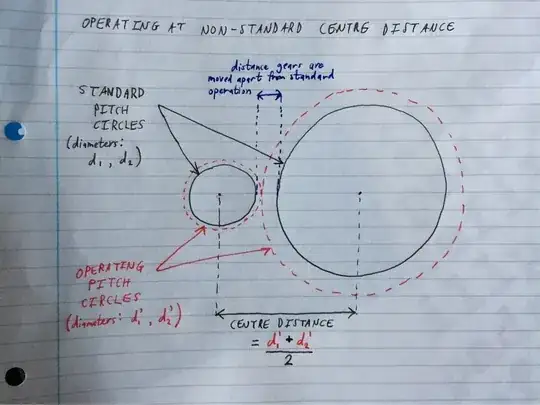 OPERATING AT NON-STANDARD CENTRE DISTANCE
distance gears are
moved apart from standard
operation
STANDARD
PITCH
CIRCLES
(diameters:
d₁, d₂)
OPERATING
PITCH
CIRCLES
(diameters: d₁', d₂')
CENTRE DISTANCE
= d₁' + d₂'
2